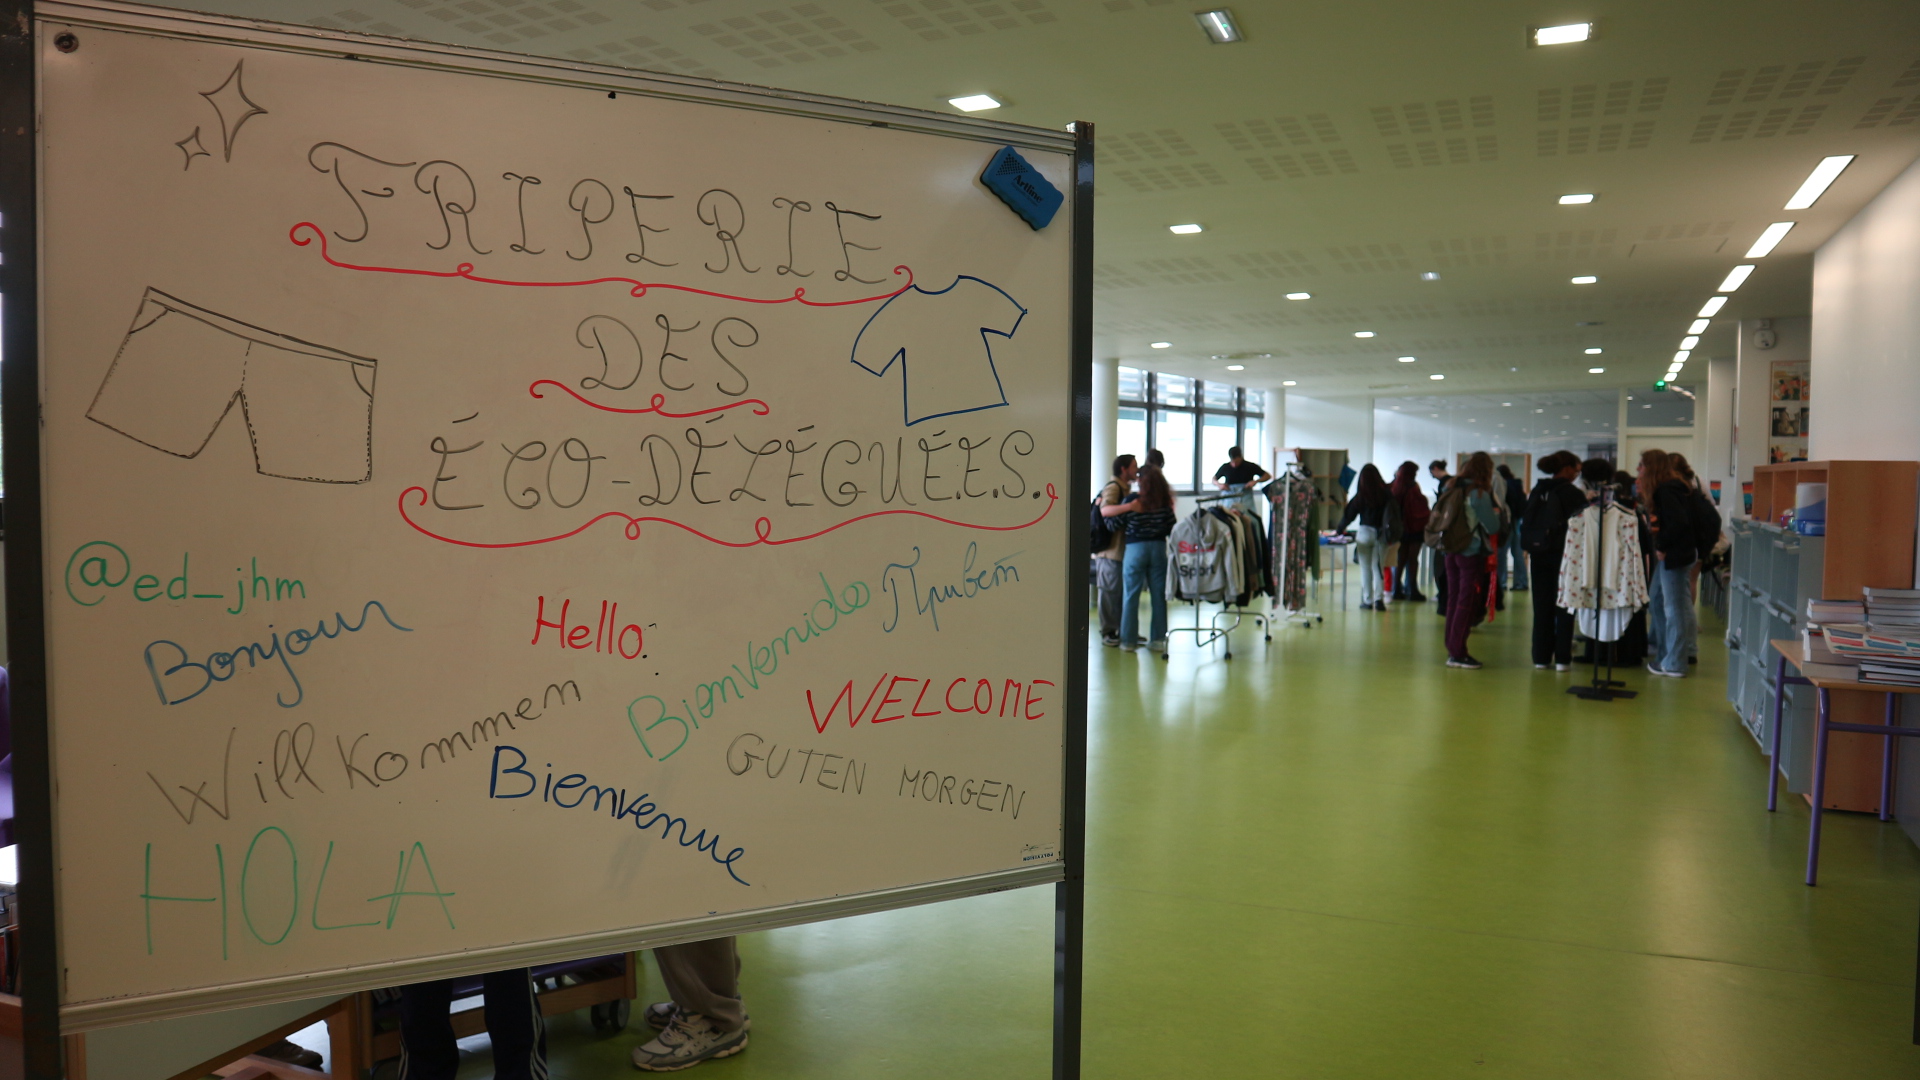 FRIPERIE
DES
ÉCO-DÉLÉGUÉ.E.S.
@ed_jhm
Bonjour
Hello.
Bienvenido
Привет
WELCOME
Willkommen
Bienvenue
GUTEN MORGEN
HOLA
Artline
POLYVISION
Sport